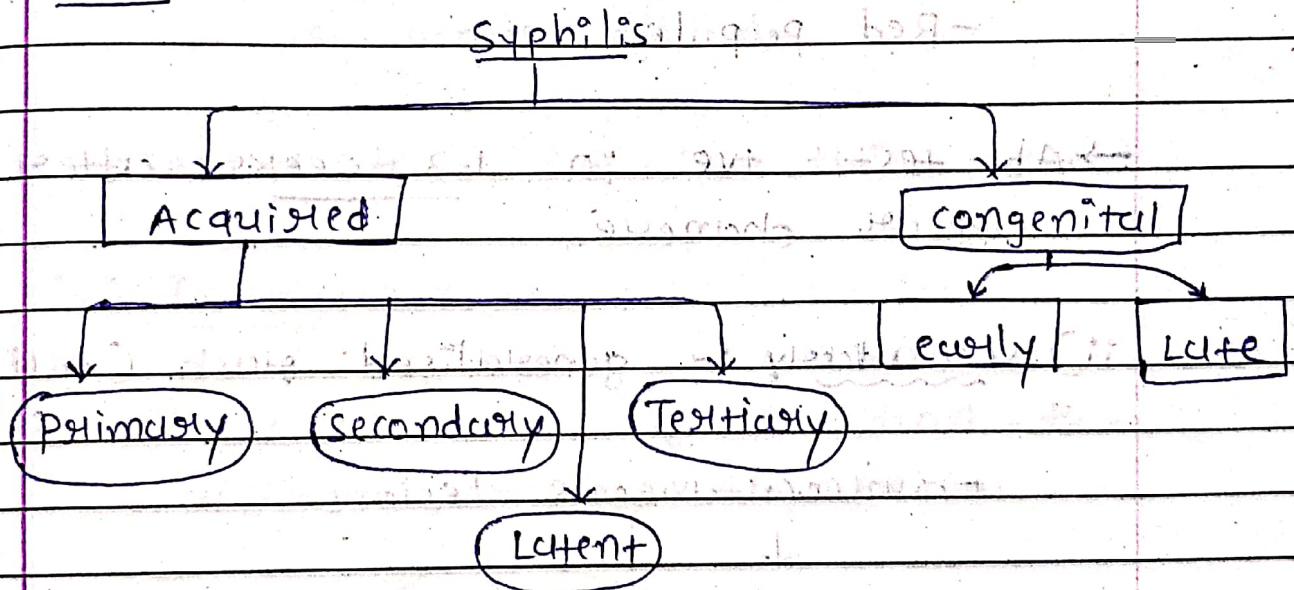 Syphilis
Acquired
congenital
early
Late
Primary
secondary
Tertiary
Latent